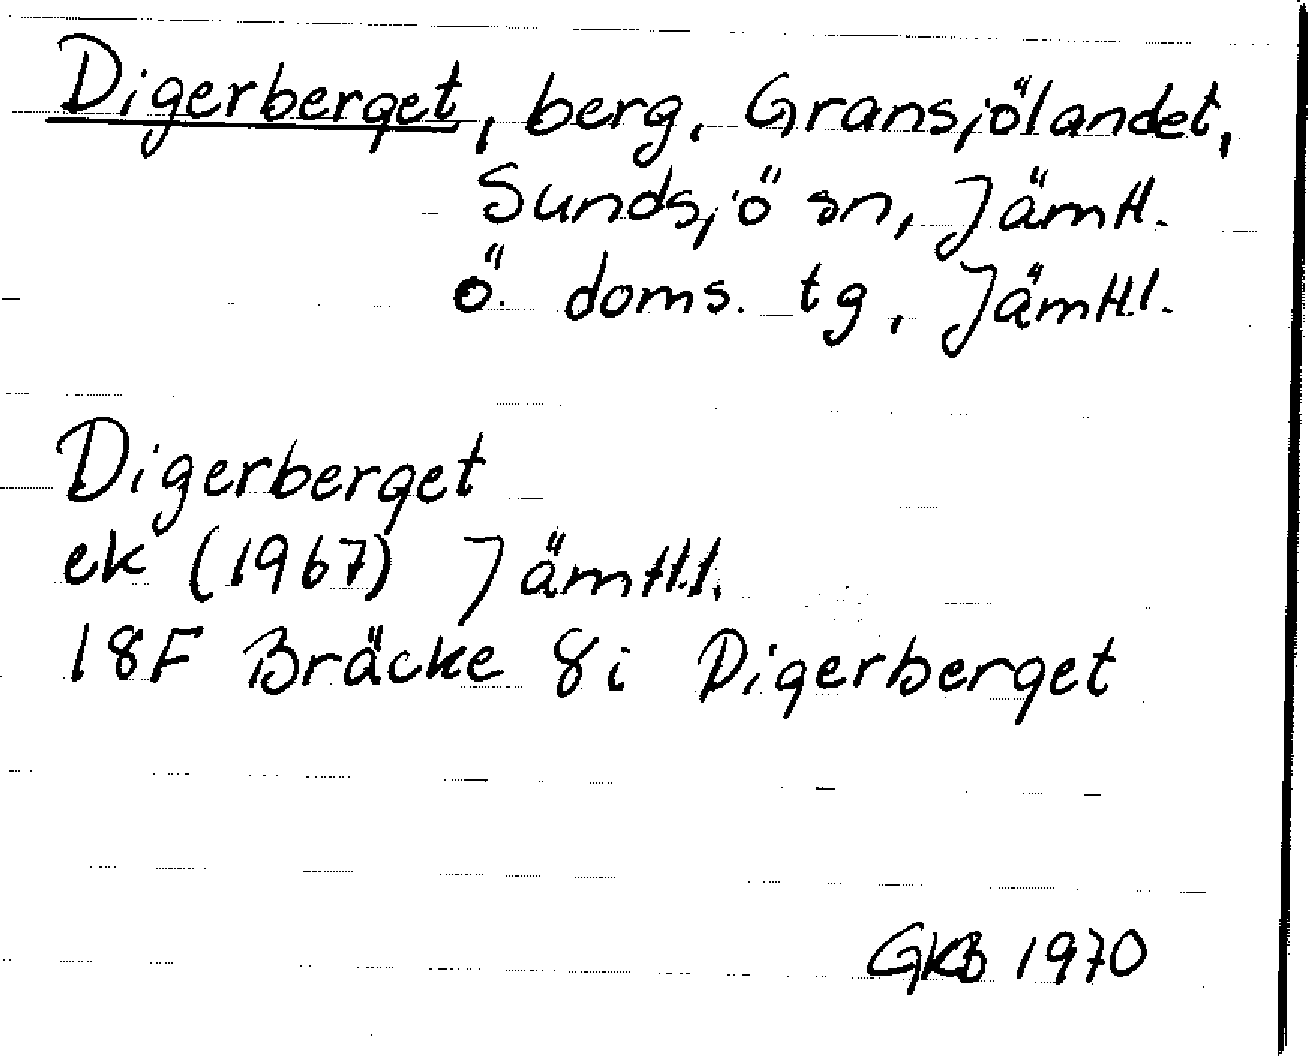 Digerberget, berg, Gransjölandet,
Sundsjö sn, Jämtl.
ö. doms. tg, Jämtl.l.
Digerberget
ek (1967) Jämtl.l.
18F Bräcke 8i Digerberget
GKB 1970